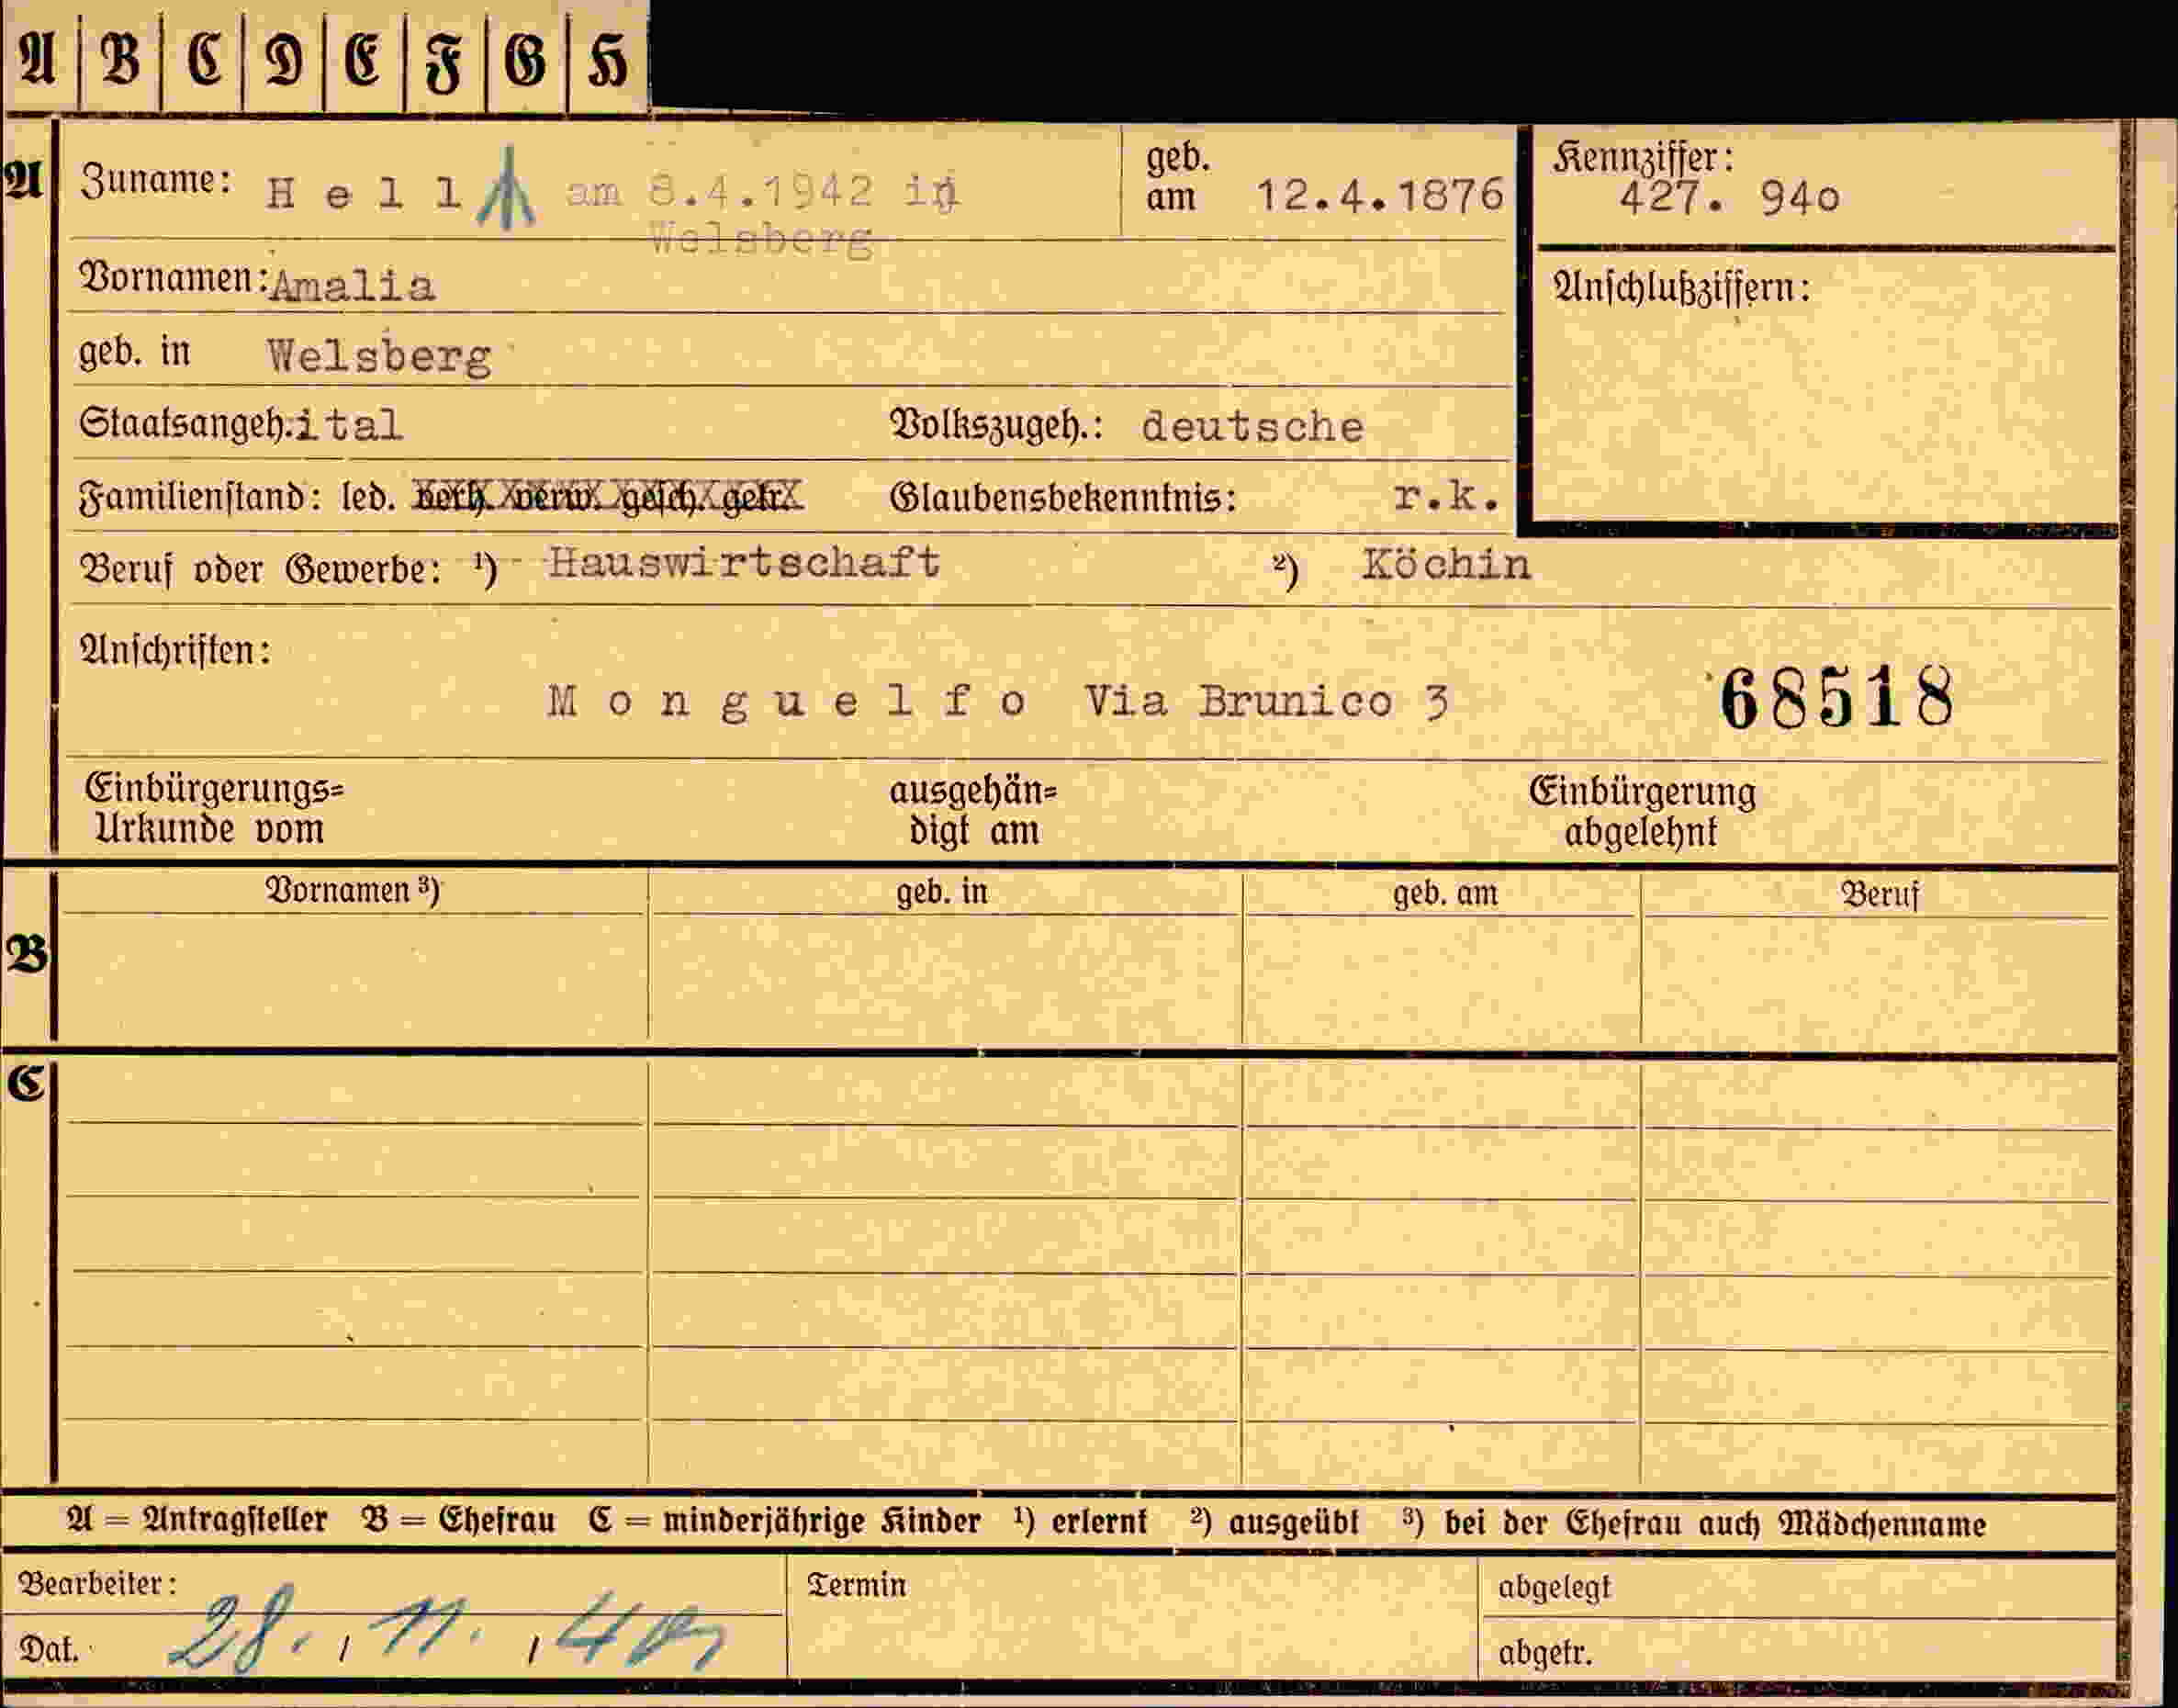 A B C D E F G H
A
Zuname: Hell am 8.4.1942 in
Welsberg
geb. am 12.4.1876
Kennziffer:
427. 940
Vornamen: Amalia
Anschlußziffern:
geb. in Welsberg
Staatsangeh.: ital Volkszugeh.: deutsche
Familienstand: led. verh. verw. gesch. getr. Glaubensbekenntnis: r.k.
Beruf oder Gewerbe: ¹) Hauswirtschaft ²) Köchin
Anschriften:
Monguelfo Via Brunico 3 68518
Einbürgerungs=
Urkunde vom
ausgehän=
digt am
Einbürgerung
abgelehnt
B
Vornamen ³) geb. in geb. am Beruf
C
A = Antragsteller B = Ehefrau C = minderjährige Kinder ¹) erlernt ²) ausgeübt ³) bei der Ehefrau auch Mädchenname
Bearbeiter:
Dat. 28. 11.
Termin
abgelegt
abgetr.